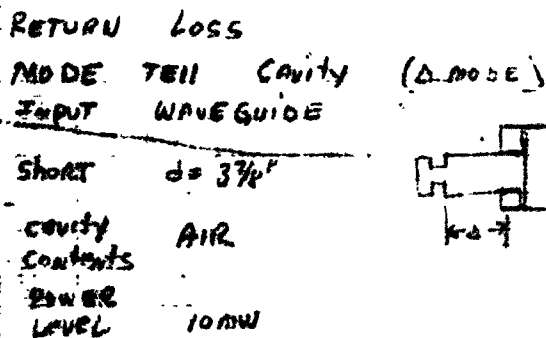 RETURN LOSS
MODE TE111 CAVITY (Δ MODE)
INPUT WAVEGUIDE
SHORT d = 3 7/8"
CAVITY CONTENTS AIR
POWER LEVEL 10 mW